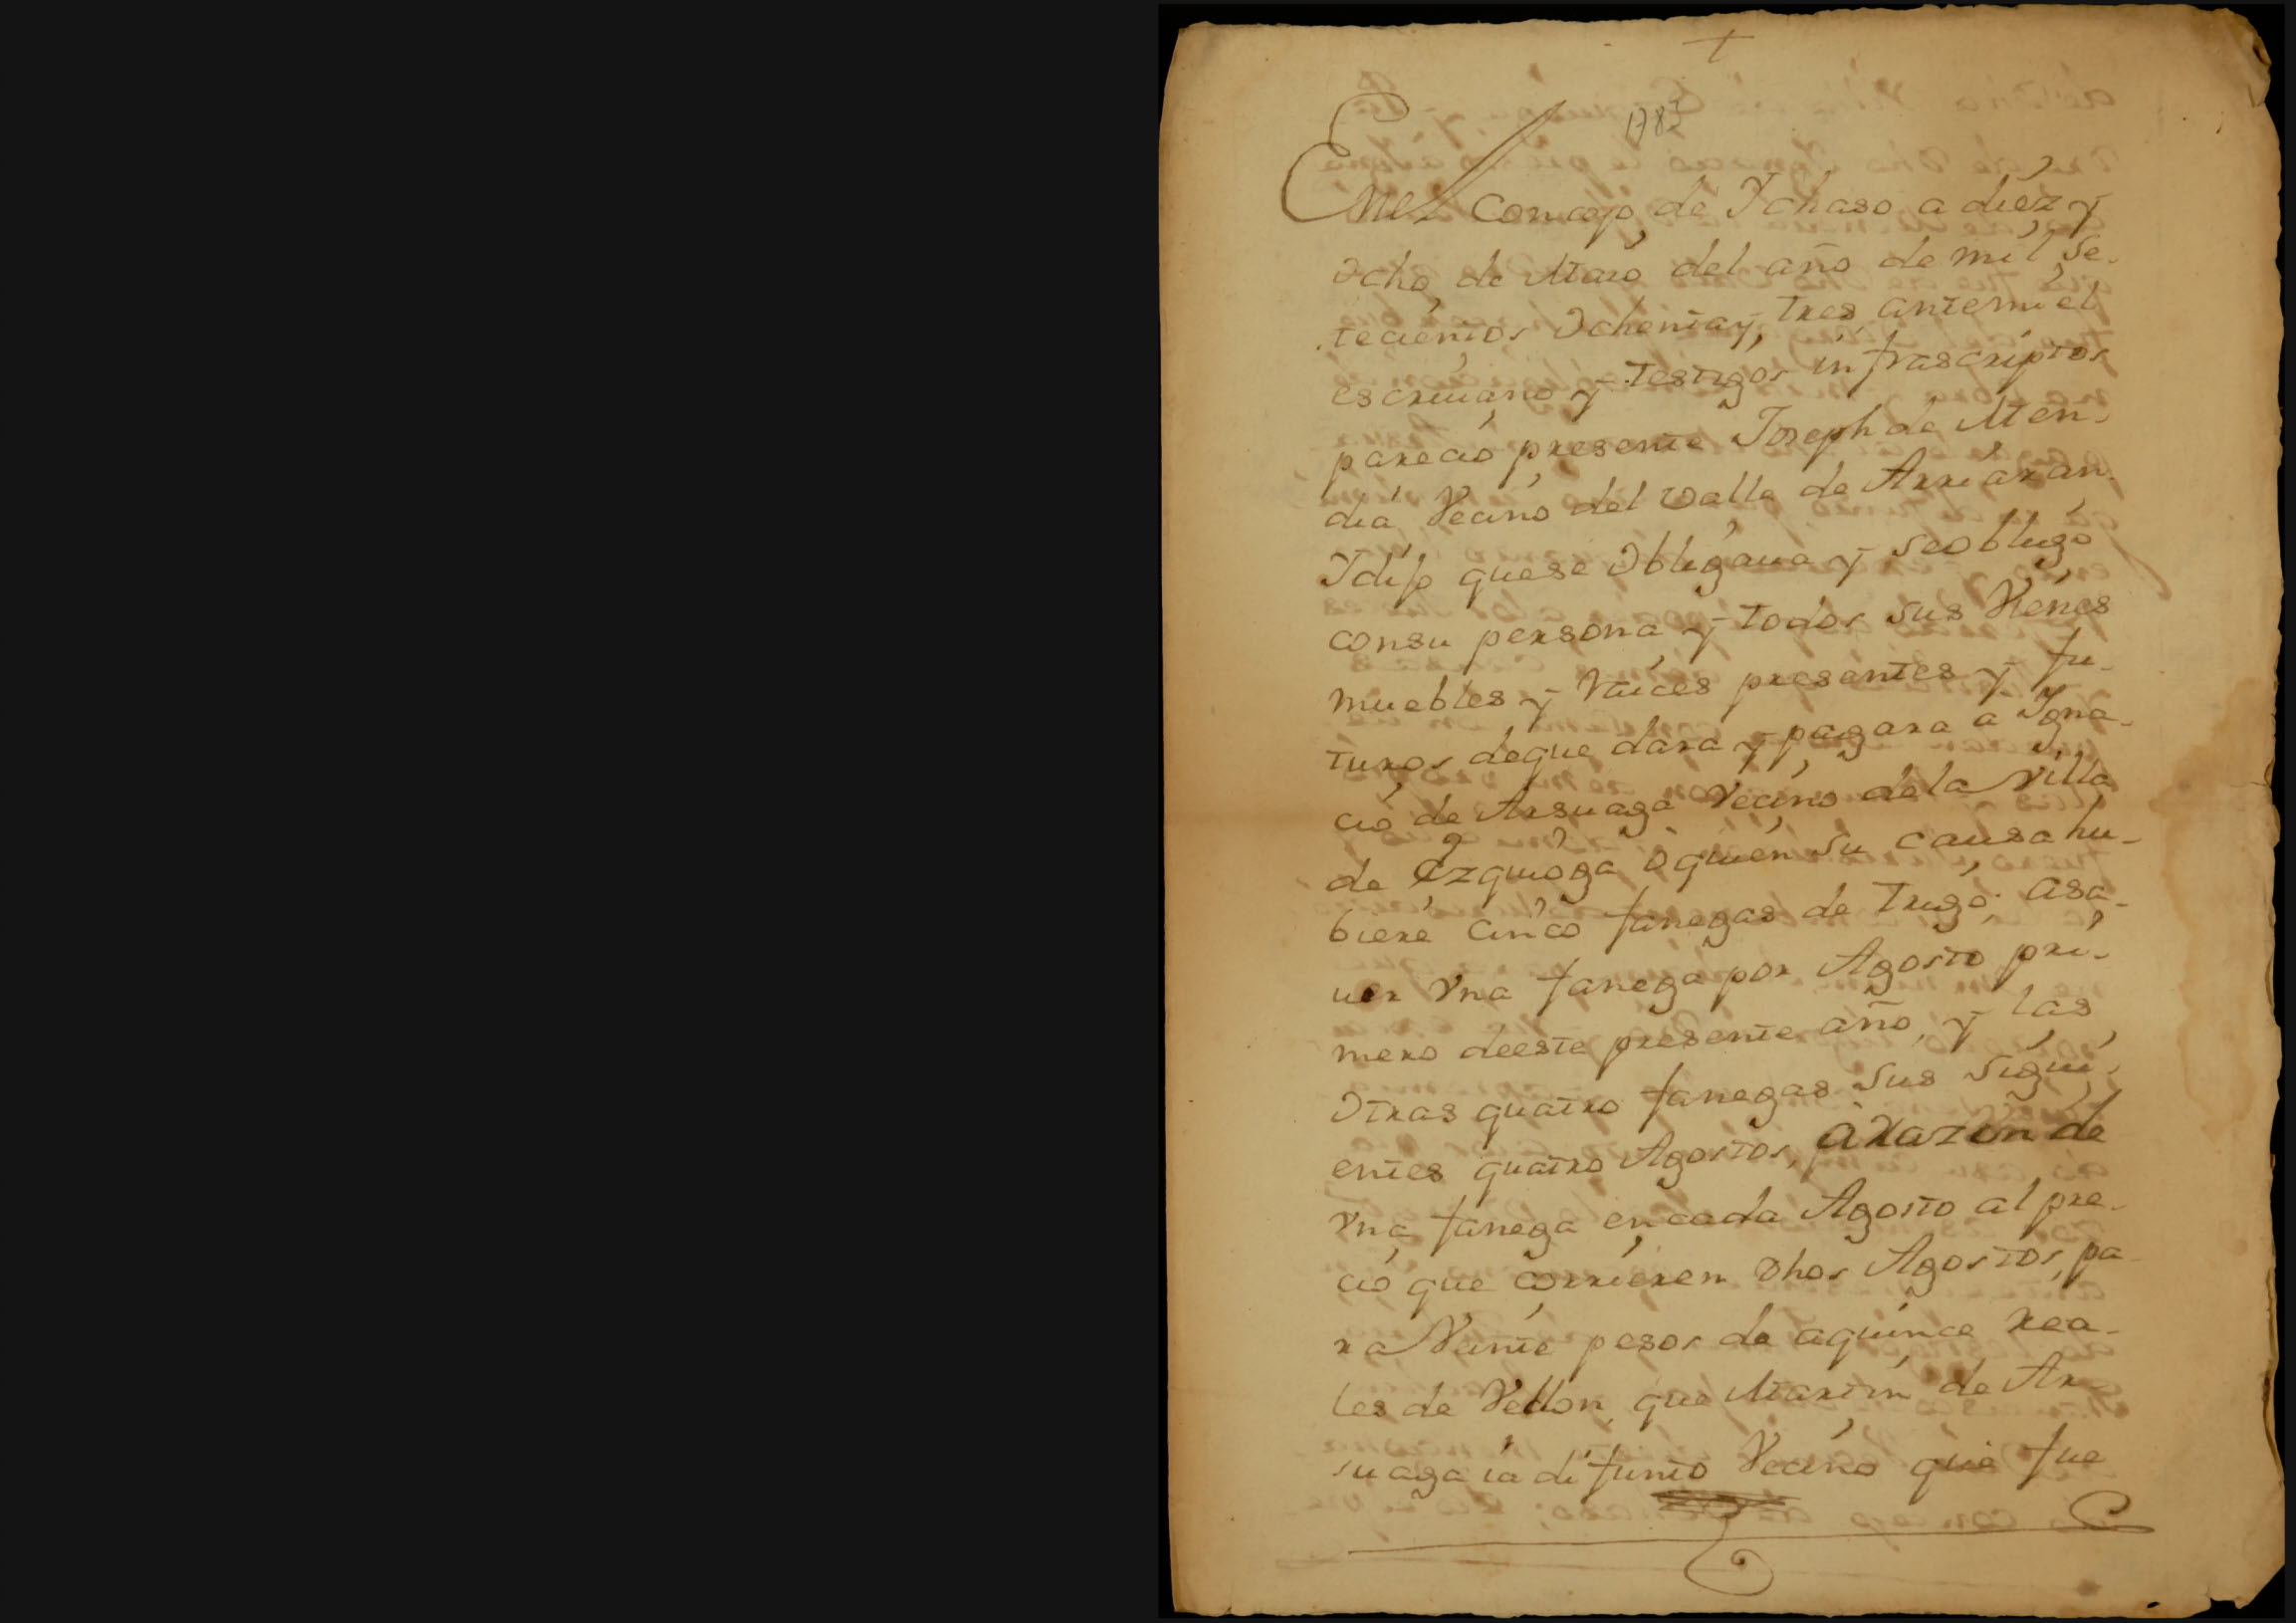 +
1783
En el Concejo de Ychaso a diez y
Ocho de Maio del año de mil se-
tecientos Ochenta y tres antemi el
escriuano y testigos infrascriptos
parecio presente Joseph de Men-
dia Vecino del Valle de Arriaran
Y dijo quese Obligaua y seobligo
consu persona y todos sus Vienes
muebles y raices presentes y fu-
turos deque dara y pagara a Ygna-
cio de Arsuaga Vecino dela Villa
de Ezquioga o quien su causa hu-
biere Cinco fanegas de Trigo; asa-
uer Vna fanega por Agosto pri-
mero deeste presente año, y las
Otras quatro fanegas sus sigui-
entes quatro Agostos, arazon de
Vna fanega encada Agosto al pre-
cio que corrieren dhos Agostos, pa-
ra Veinte pesos de aquince rea-
les de Vellon, que Martin de Ar-
suaga ia difunto Vecino que fue